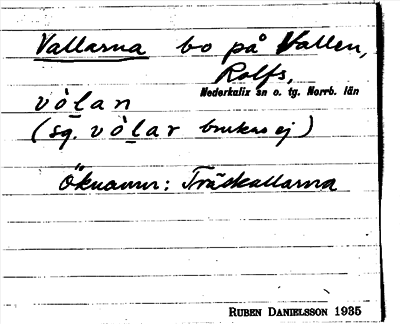 Vallarna bo på Vallen,
Rolfs,
Nederkalix sn o. tg. Norrb. län
vò̀lan
(sg. vò̀lar brukas ej)
Öknamn: Träskallarna
RUBEN DANIELSSON 1935